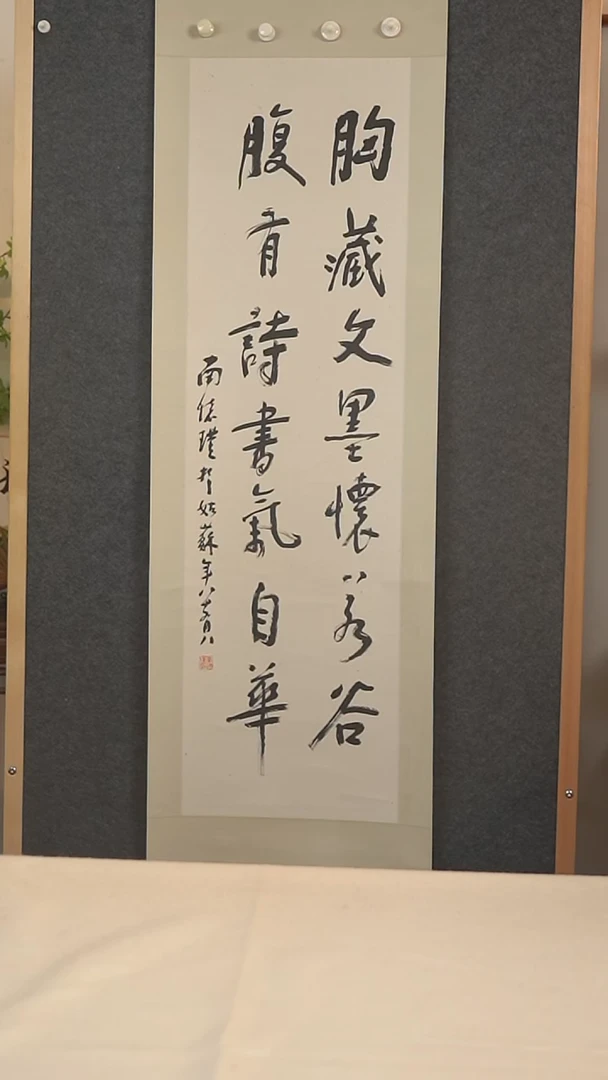 胸藏文墨懷若谷
腹有詩書氣自華
於姑蘇年八十